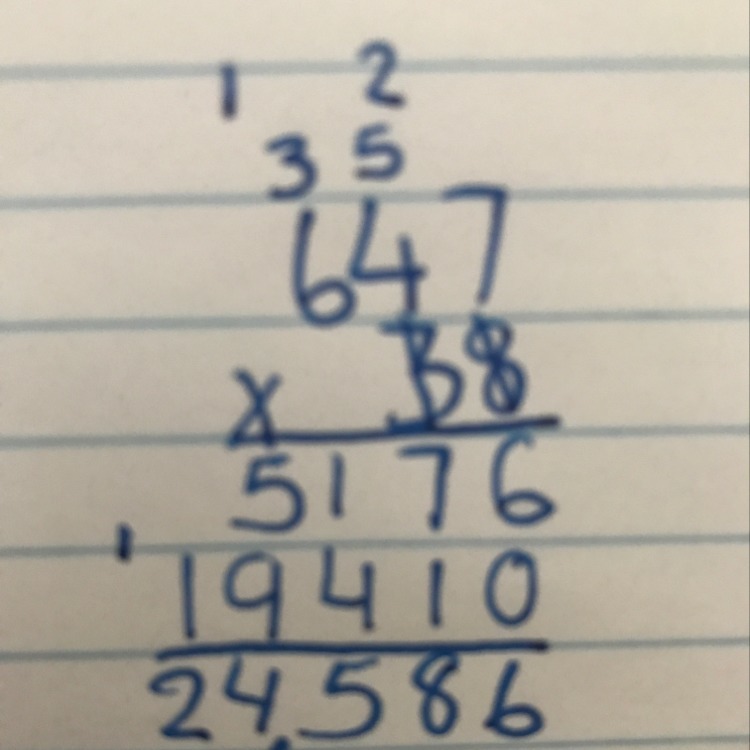 1 2
3 5
647
x 38
5176
1
19410
24,586